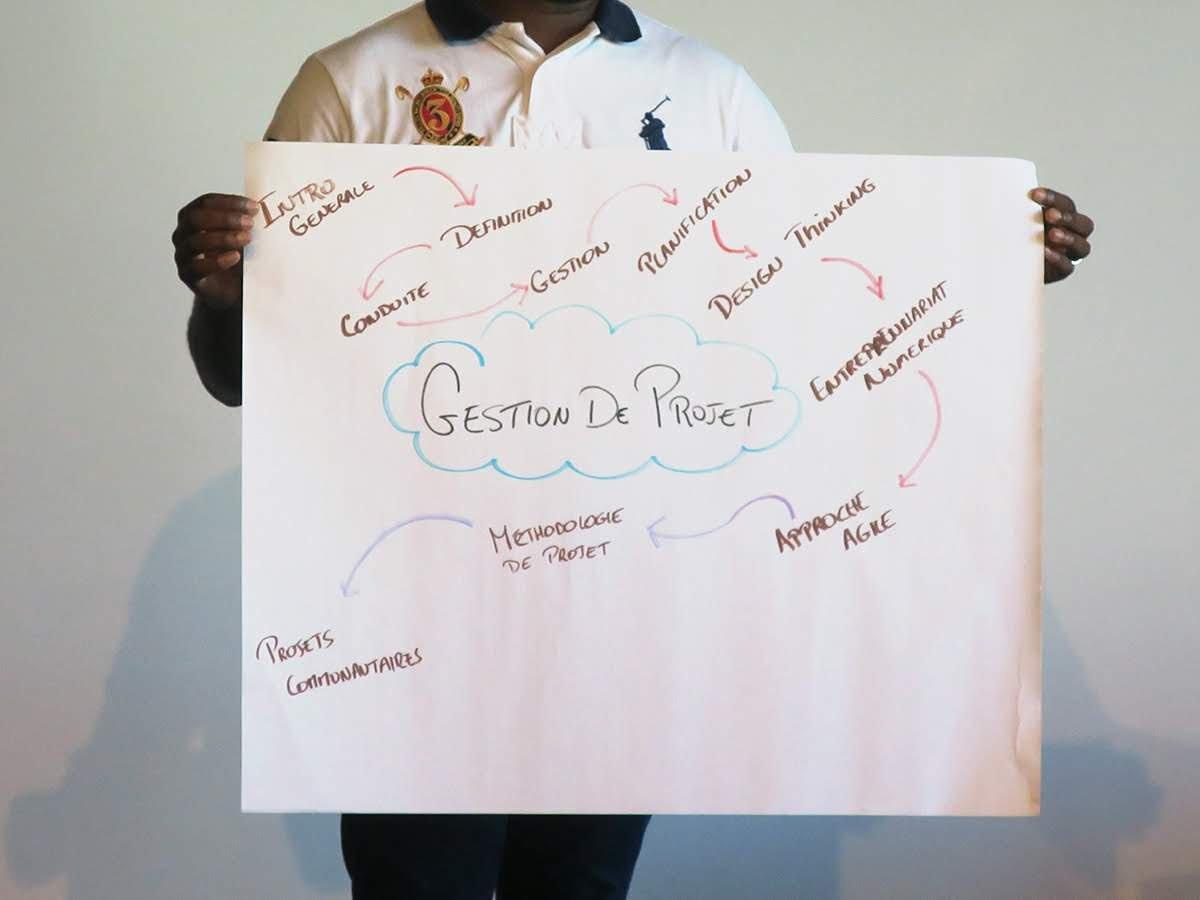 3
INTRO
GENERALE
DEFINITION
CONDUITE
GESTION
PLANIFICATION
DESIGN THINKING
ENTREPRENNARIAT
NUMERIQUE
GESTION DE PROJET
APPROCHE
AGILE
METHODOLOGIE
DE PROJET
PROJETS
COMMUNAUTAIRES